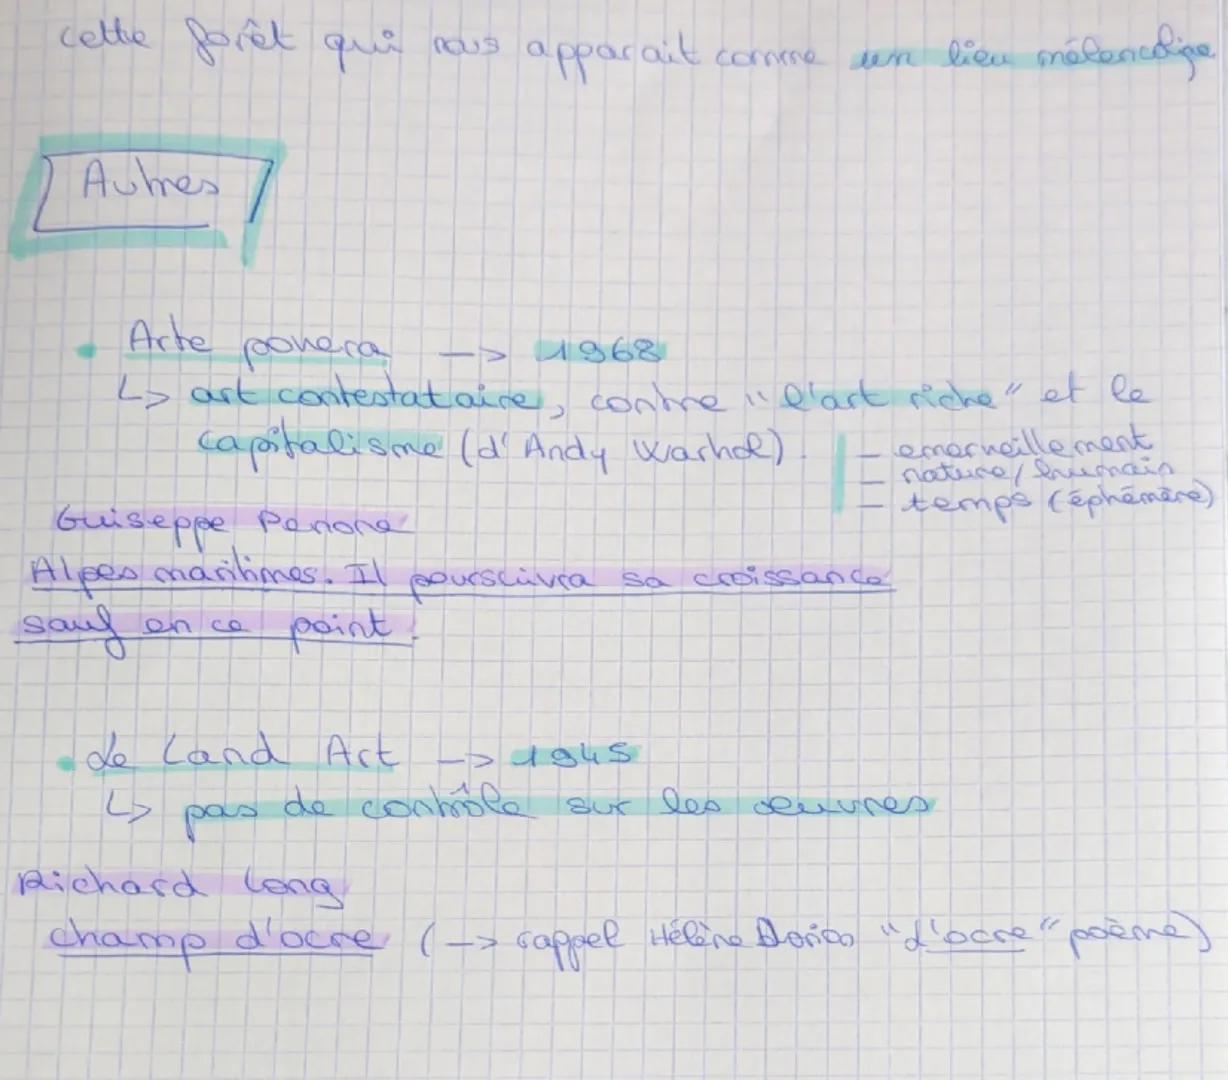 cette forêt qui nous apparait comme un lieu mélancolique
Autres
• Arte povera --> 1968
↳ art contestataire, contre "l'art riche" et le
capitalisme (d'Andy Warhol).
- emerveillement
- nature/humain
- temps (éphémère)
Guiseppe Penone
Alpes maritimes. Il poursuivra sa croissance
sauf en ce point.
• Le Land Art --> 1945
↳ pas de contrôle sur les œuvres
Richard Long
champ d'ocre (--> rappel Hélène Dorion "d'ocre" poème)